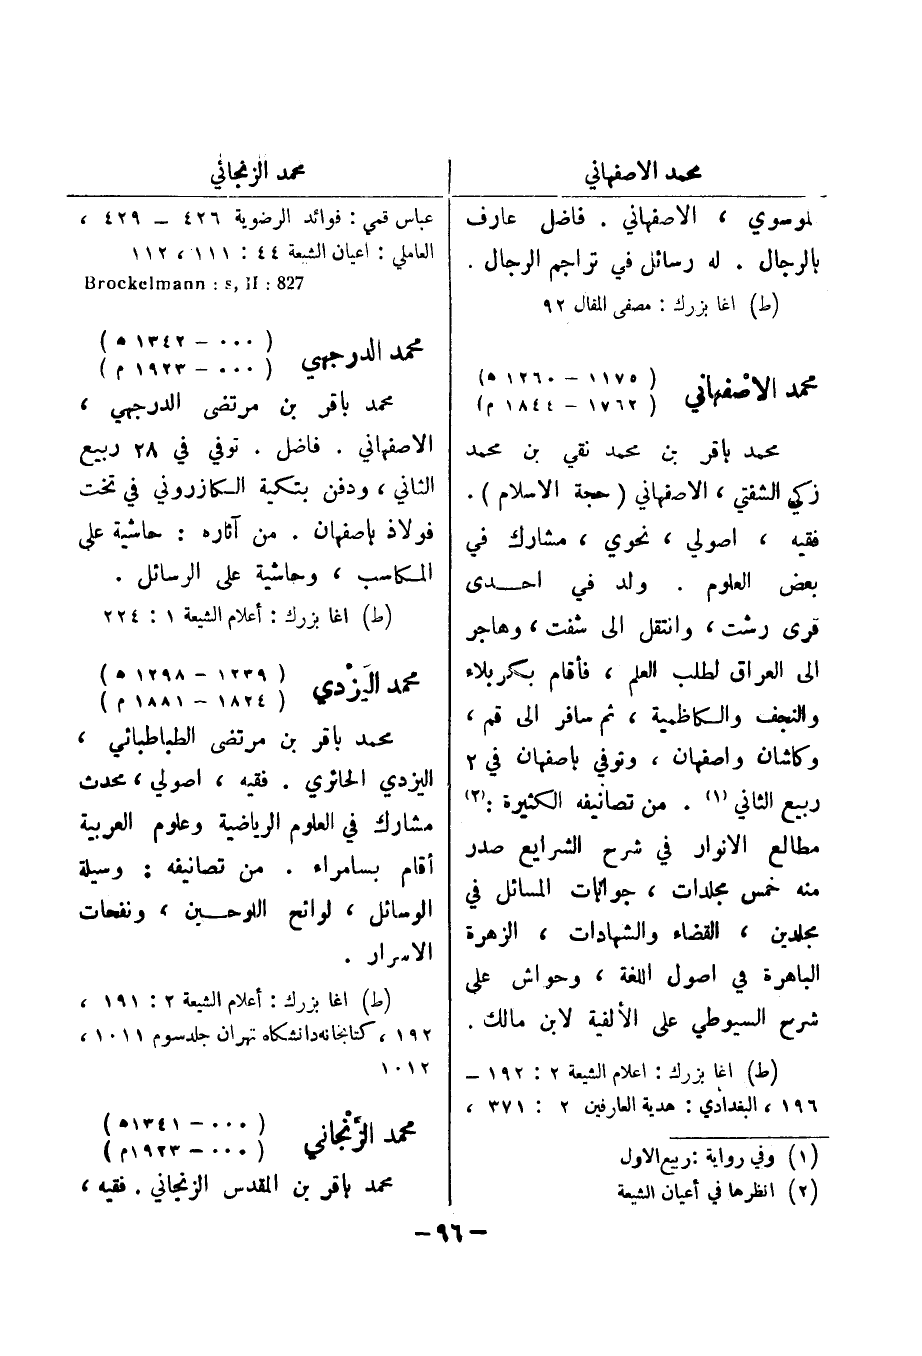 محمد الاصفهاني
لموسوي ، الاصفهاني . فاضل عارف
بالرجال . له رسائل في تراجم الرجال .
(ط) اغا بزرك : مصفى المقال ٩٢
محمد الاصْفهاني
( ١١٧٥ – ١٢٦٠ ه)
( ١٧٦٢ – ١٨٤٤ م)
محمد باقر بن محمد نقي بن محمد
زكي الشفتي ، الاصفهاني ( حجة الاسلام ) .
فقيه ، اصولي ، نحوي ، مشارك في
بعض العلوم . ولد في احـدى
قرى رشت ، وانتقل الى شفت ، وهاجر
الى العراق لطلب العلم ، فأقام بكربلاء
والنجف والكاظمية ، ثم سافر الى قم ،
وكاشان واصفهان ، وتوفي باصفهان في ٢
ربيع الثاني (١) . من تصانيفه الكثيرة :(٢)
مطالع الانوار في شرح الشرايع صدر
منه خمس مجلدات ، جوابات المسائل في
مجلدين ، القضاء والشهادات ، الزهرة
الباهرة في اصول اللغة ، وحواش على
شرح السيوطي على الألفية لابن مالك .
(ط) اغا بزرك : اعلام الشيعة ٢ : ١٩٢ –
١٩٦ ، البغدادي : هدية العارفين ٢ : ٣٧١ ،
(١) وفي رواية : ربيع الاول
(٢) انظرها في أعيان الشيعة
محمد الزنجاني
عباس قمي : فوائد الرضوية ٤٢٦ – ٤٢٩ ،
العاملي : اعيان الشيعة ٤٤ : ١١١ ، ١١٢
Brockelmann : s, II : 827
محمد الدرجهي
( ٠٠٠ – ١٣٤٢ ه )
( ٠٠٠ – ١٩٢٣ م )
محمد باقر بن مرتضى الدرجهي ،
الاصفهاني . فاضل . توفي في ٢٨ ربيع
الثاني ، ودفن بتكية الكازروني في تخت
فولاذ باصفهان . من آثاره : حاشية على
المكاسب ، وحاشية على الرسائل .
(ط) اغا بزرك : أعلام الشيعة ١ : ٢٢٤
محمد اليَزْدي
( ١٢٣٩ – ١٢٩٨ ه )
( ١٨٢٤ – ١٨٨١ م )
محمد باقر بن مرتضى الطباطبائي ،
اليزدي الحائري . فقيه ، اصولي ، محدث
مشارك في العلوم الرياضية وعلوم العربية
أقام بسامراء . من تصانيفه : وسيلة
الوسائل ، لوائح اللوحـين ، ونفحات
الاسرار .
(ط) اغا بزرك : أعلام الشيعة ٢ : ١٩١ ،
١٩٢ ، كتابخانه دانشكاه تهران جلد سوم ١٠١١ ،
١٠١٢
محمد الزَّنْجاني
( ٠٠٠ – ١٣٤١ه )
( ٠٠٠ – ١٩٢٣م )
محمد باقر بن المقدس الزنجاني . فقيه ،
– ٩٦ –